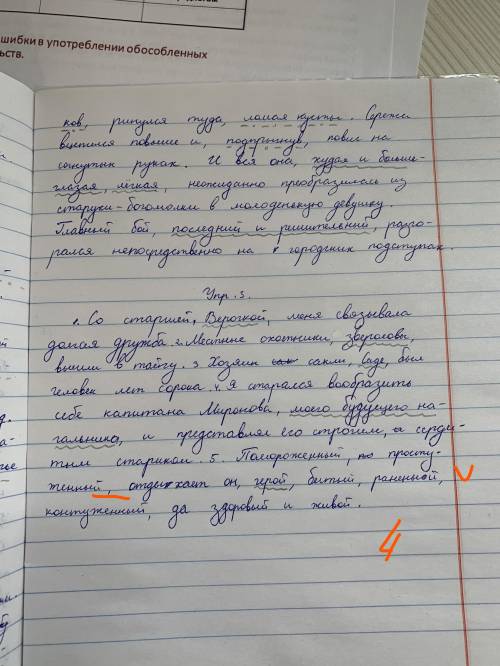 шибки в употреблении обособленных
ьств.
ков, ринулся туда, ломая кусты. Сережа
вцепился повыше и, подпрыгнув, повис на
согнутых руках. И вся она, худая и больше-
глазая, легкая, неожиданно преобразилась из
старухи-богомолки в молоденькую девушку.
Главный бой, последний и решительный, разго-
рался непосредственно на городских подступах.
Упр. 3.
1. Со старшей, Верочкой, меня связывала
долгая дружба. 2. Местные охотники, зверловы,
вышли в тайгу. 3 Хозяин сакли, Саде, был
человек лет сорока. 4. Я старался вообразить
себе капитана Миронова, моего будущего на-
чальника, и представлял его строгим, серди-
тым стариком. 5. Помороженный, просту-
женный, отдыхает он, герой, битый, раненной,
контуженный, да здоровый и живой.
V
4